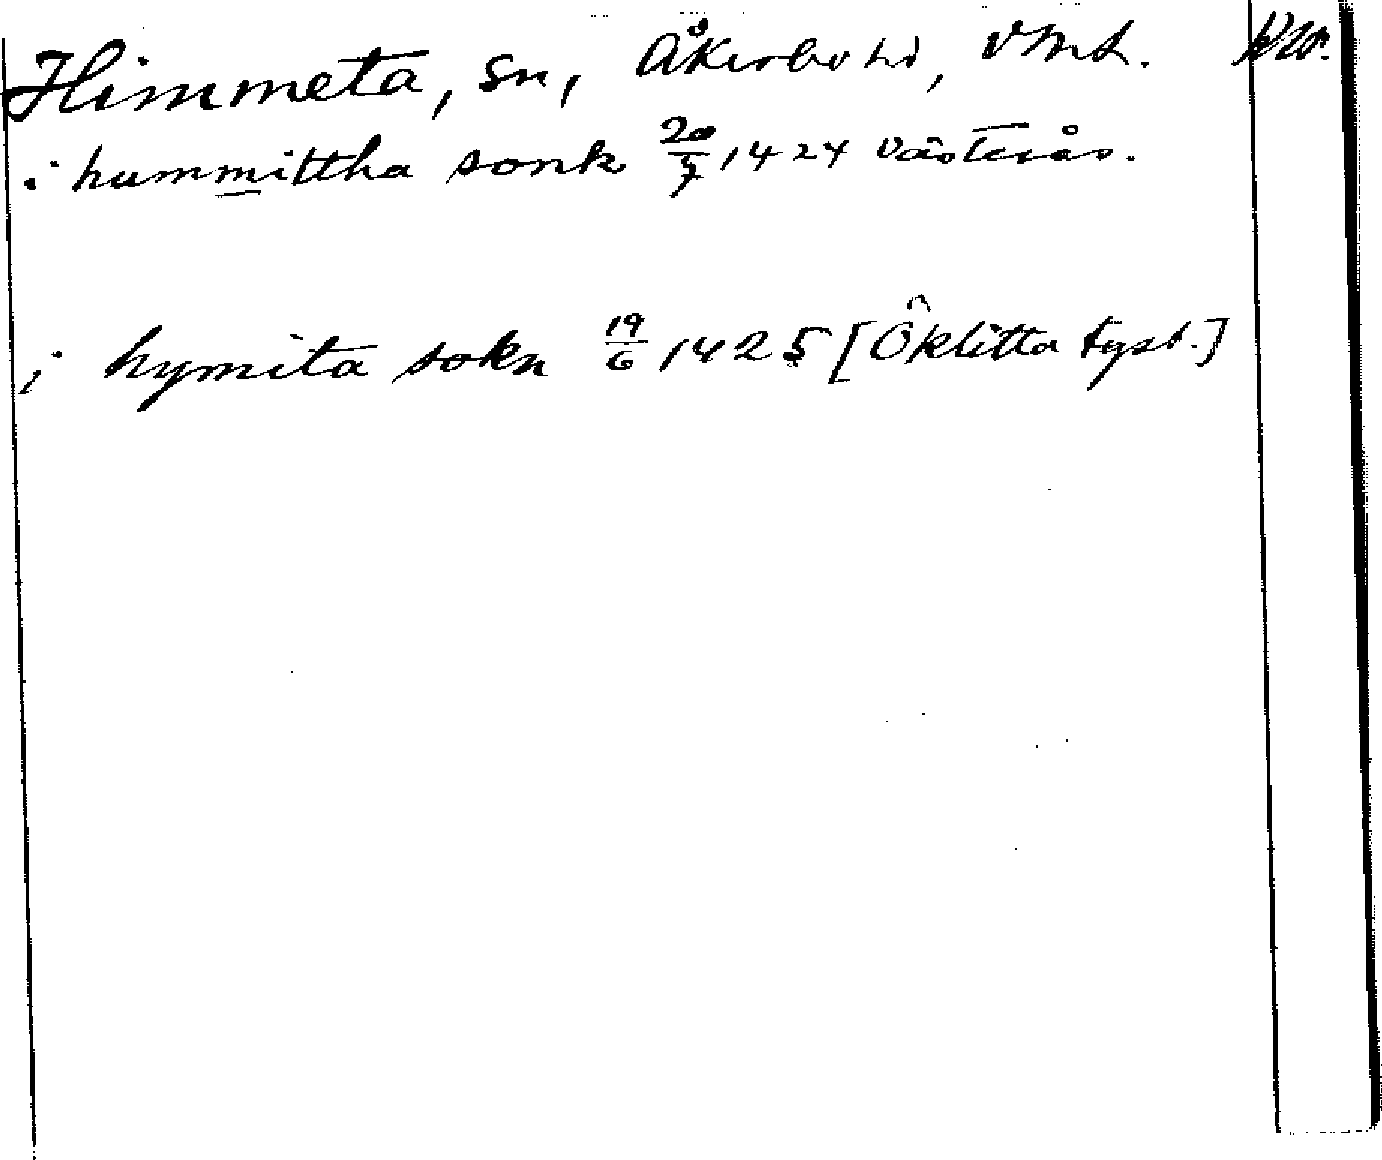 Himmeta, sn, Åkerbo hd, Vml.
i hummittha sonk 20/5 1424 Västerås.
i hymita sokn 19/6 1425 [Öklitta